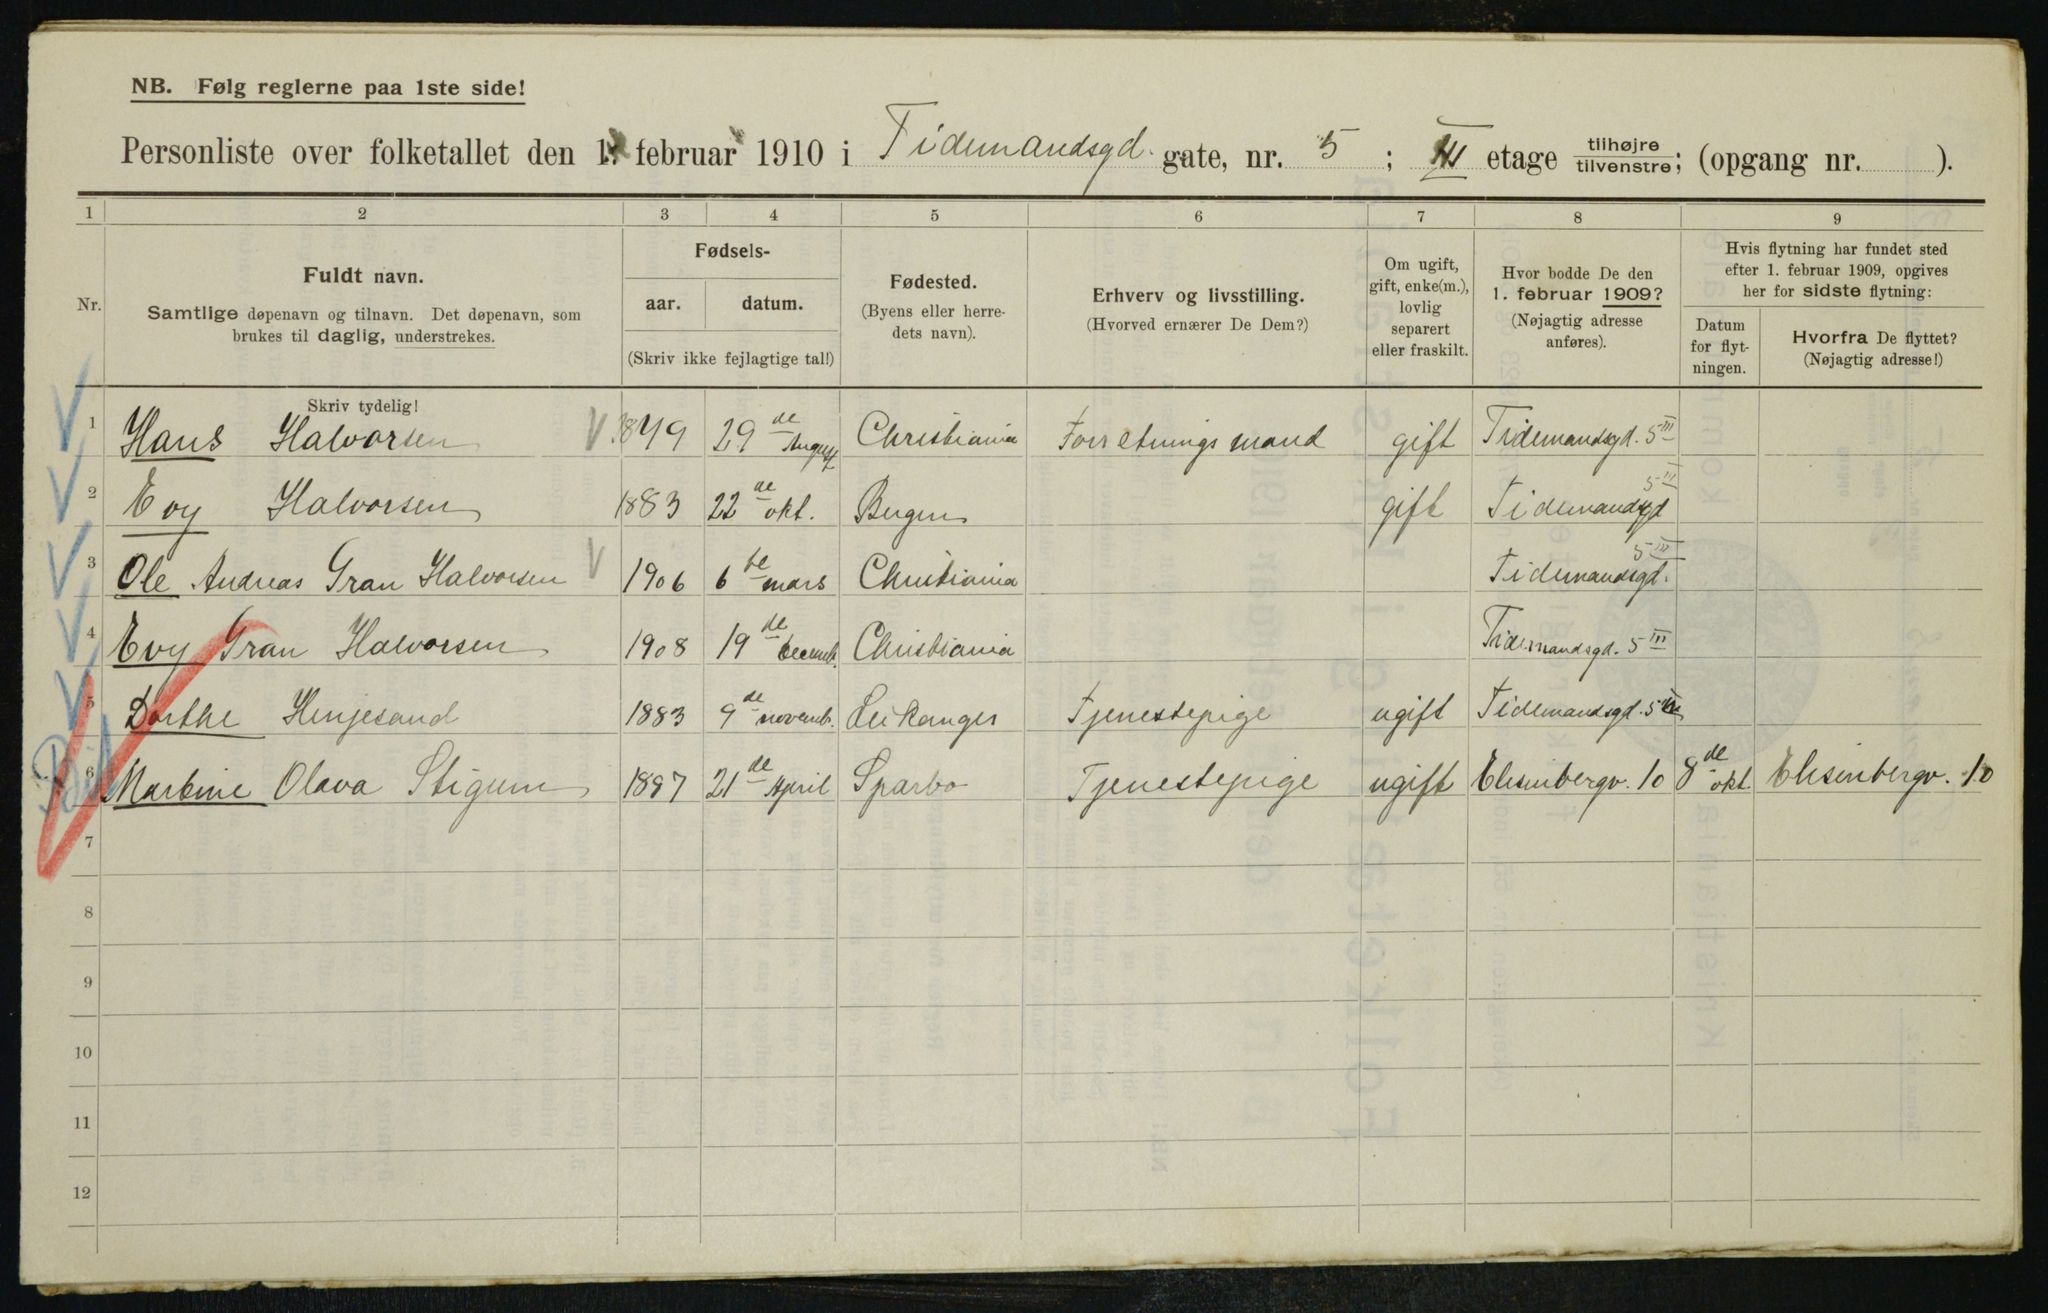 NB. Følg reglerne paa 1ste side!
Personliste over folketallet den 1. februar 1910 i Tidemandsgd. gate, nr. 5 ; III etage tilhøjre tilvenstre; (opgang nr. ).
1 2 3 4 5 6 7 8 9
Nr.
Fuldt navn.
Samtlige døpenavn og tilnavn. Det døpenavn, som
brukes til daglig, understrekes.
Skriv tydelig!
Fødsels-
aar. datum.
(Skriv ikke fejlagtige tal!)
Fødested.
(Byens eller herre-
dets navn).
Erhverv og livsstilling.
(Hvorved ernærer De Dem?)
Om ugift,
gift, enke(m.),
lovlig
separert
eller fraskilt.
Hvor bodde De den
1. februar 1909?
(Nøjagtig adresse
anføres).
Hvis flytning har fundet sted
efter 1. februar 1909, opgives
her for sidste flytning:
Datum
for flyt-
ningen.
Hvorfra De flyttet?
(Nøjagtig adresse!)
1 Hans Halvorsen 29de August Christiania Forretningsmand gift Tidemandsgd. 5 III
2 Evy Halvorsen 1883 22de okt. Bergen gift Tidemandsgd 5 III
3 Ole Andreas Gran Halvorsen 1906 6te mars Christiania Tidemandsgd. 5 III
4 Evy Gran Halvorsen 1908 19de decemb. Christiania Tidemandsgd. 5 III
5 Dorthe Henjesand 1883 9de novemb. Leikanger Tjenestepige ugift Tidemandsgd. 5 III
6 Martine Olava Stigum 1887 21de April Sparbo Tjenestepige ugift Elisenbergv. 10 8de okt. Elisenbergv. 10
7
8
9
10
11
12